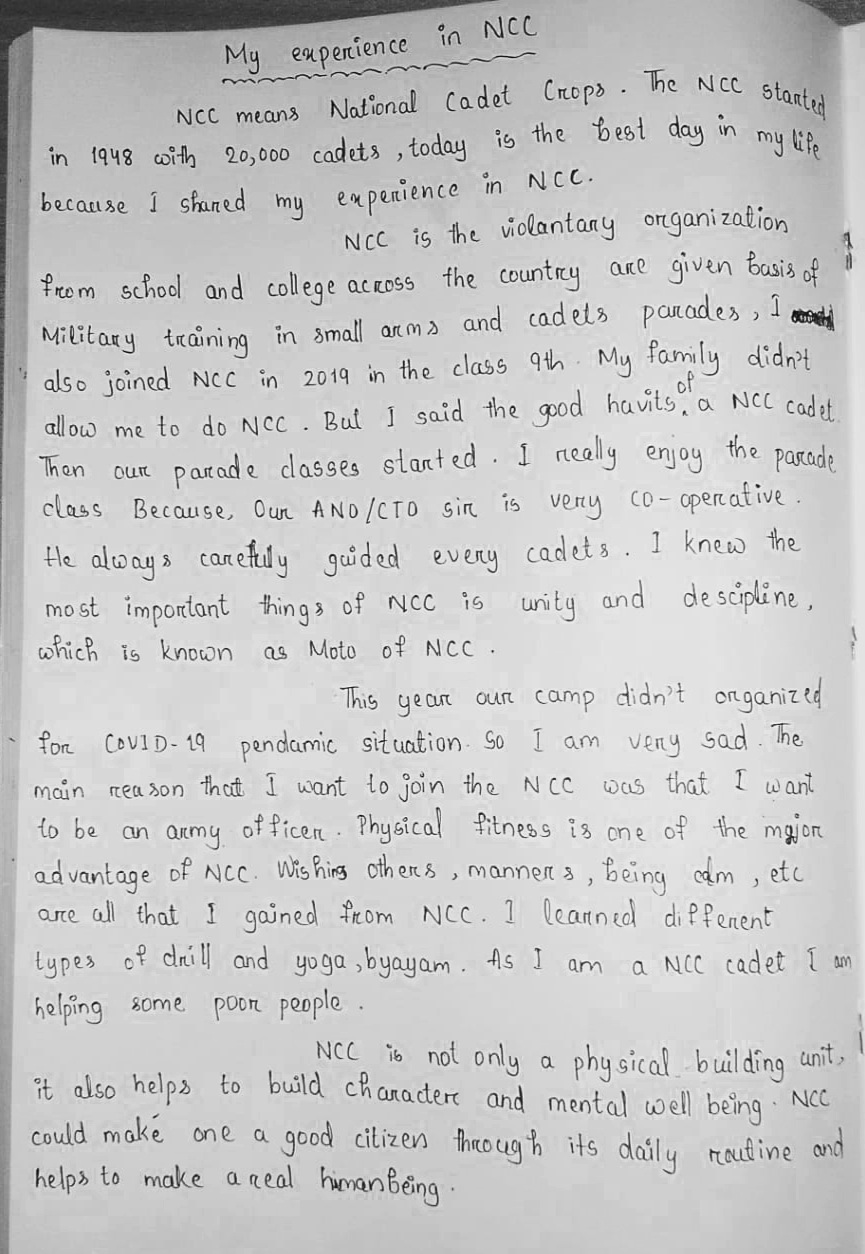 My experience in NCC
NCC means National Cadet Crops. The NCC started
in 1948 with 20,000 cadets, today is the best day in my life
because I shared my experience in NCC.
NCC is the violantary organization
from school and college across the country are given basis of
Military training in small arms and cadets parades, I
also joined NCC in 2019 in the class 9th. My family didn't
allow me to do NCC. But I said the good havits of a NCC cadet.
Then our parade classes started. I really enjoy the parade
class Because, Our ANO/CTO sir is very co-operative.
He always carefuly guided every cadets. I knew the
most important things of NCC is unity and descipline,
which is known as Moto of NCC.
This year our camp didn't organized
for COVID-19 pendamic situation. So I am very sad. The
main reason that I want to join the NCC was that I want
to be an army officer. Physical fitness is one of the major
advantage of NCC. Wishing others, manners, being calm, etc
are all that I gained from NCC. I learned different
types of drill and yoga, byayam. As I am a NCC cadet I am
helping some poor people.
NCC is not only a physical building unit,
it also helps to build character and mental well being. NCC
could make one a good citizen through its daily routine and
helps to make a real humanbeing.